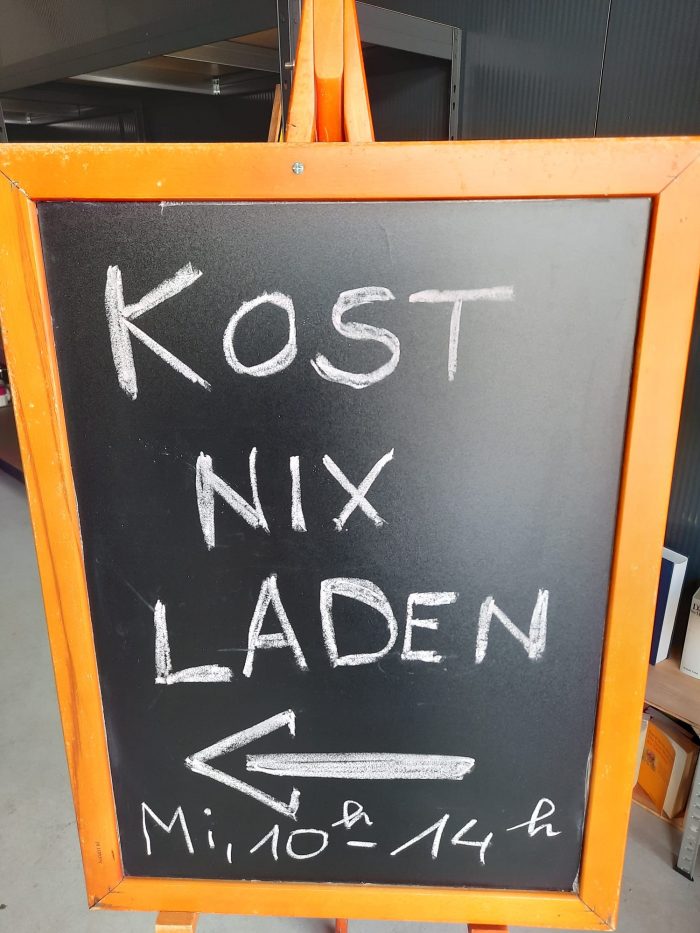 KOST
NIX
LADEN
Mi, 10h - 14h